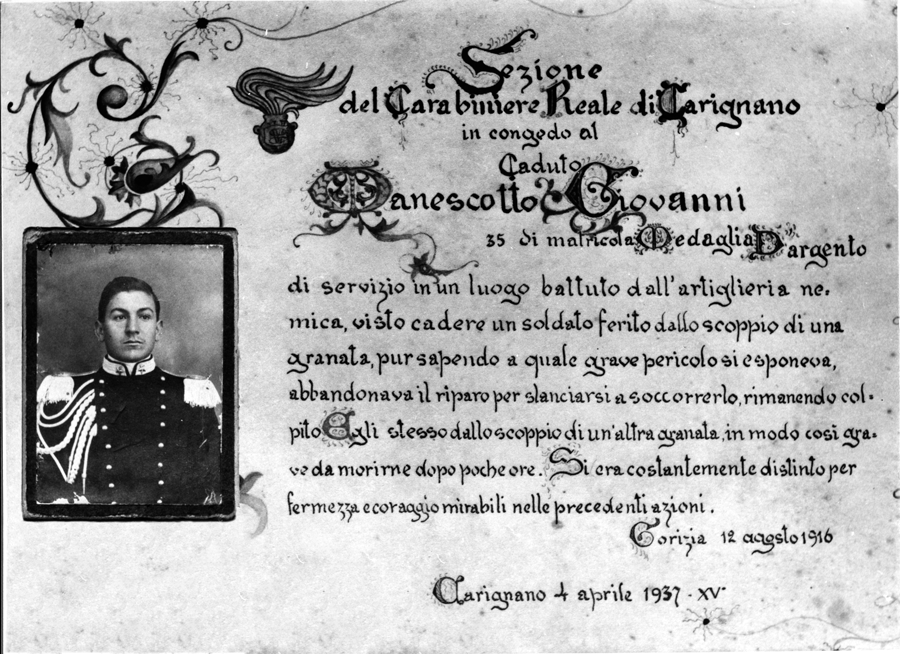 Sezione
del Carabiniere Reale di Carignano
in congedo al
Caduto
Manescotto Giovanni
35 di matricola Medaglia D'argento
di servizio in un luogo battuto dall'artiglieria ne-
mica, visto cadere un soldato ferito dallo scoppio di una
granata, pur sapendo a quale grave pericolo si esponeva,
abbandonava il riparo per slanciarsi a soccorrerlo, rimanendo col-
pito Egli stesso dallo scoppio di un'altra granata, in modo così gra-
ve da morirne dopo poche ore. Si era costantemente distinto per
fermezza e coraggio mirabili nelle precedenti azioni.
Gorizia 12 agosto 1916
Carignano 4 aprile 1937 - XV°